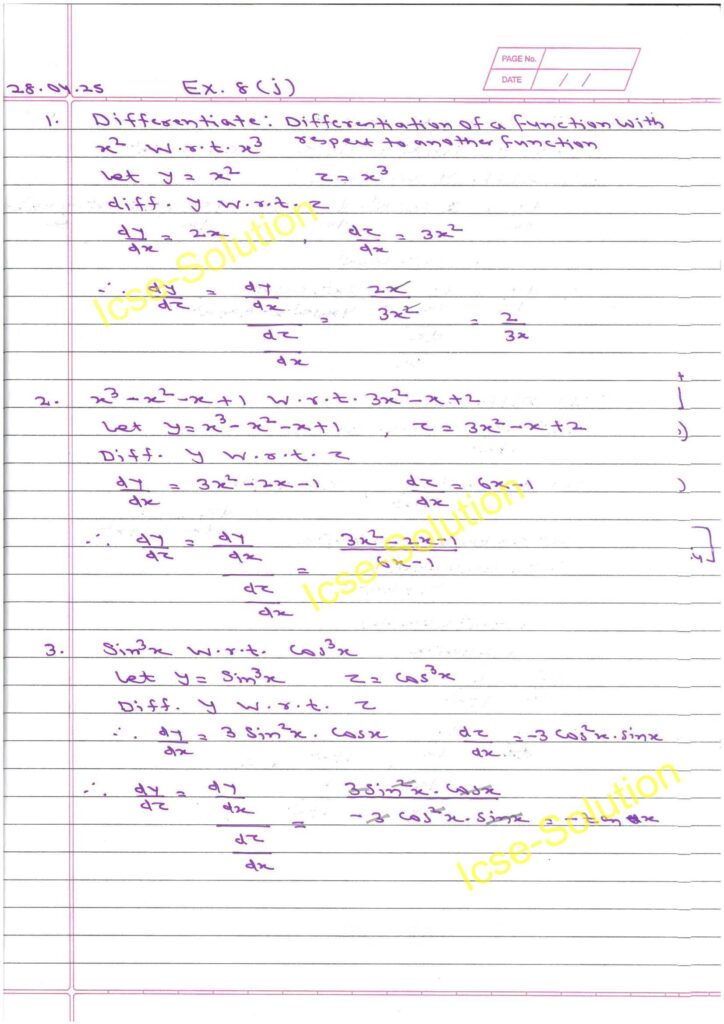 PAGE No.
DATE / /
28.04.25 Ex. 8(j)
1. Differentiate: Differentiation of a function with
x² w.r.t. x³ respect to another function
Let y = x² z = x³
diff. y w.r.t. z
dy/dx = 2x , dz/dx = 3x²
∴ dy/dz = (dy/dx)/(dz/dx) = 2x/3x² = 2/3x
2. x³-x²-x+1 w.r.t. 3x²-x+2
Let y = x³-x²-x+1 , z = 3x²-x+2
Diff. y w.r.t. z
dy/dx = 3x²-2x-1 dz/dx = 6x-1
∴ dy/dz = (dy/dx)/(dz/dx) = (3x²-2x-1)/(6x-1)
3. Sin³x w.r.t. Cos³x
Let y = Sin³x z = Cos³x
Diff. y w.r.t. z
∴ dy/dx = 3 Sin²x . Cosx dz/dx = -3 Cos²x . sinx
∴ dy/dz = (dy/dx)/(dz/dx) = (3 Sin²x . Cosx)/(-3 Cos²x . Sinx) = -tan x
Icse-Solution
Icse-Solution
Icse-Solution